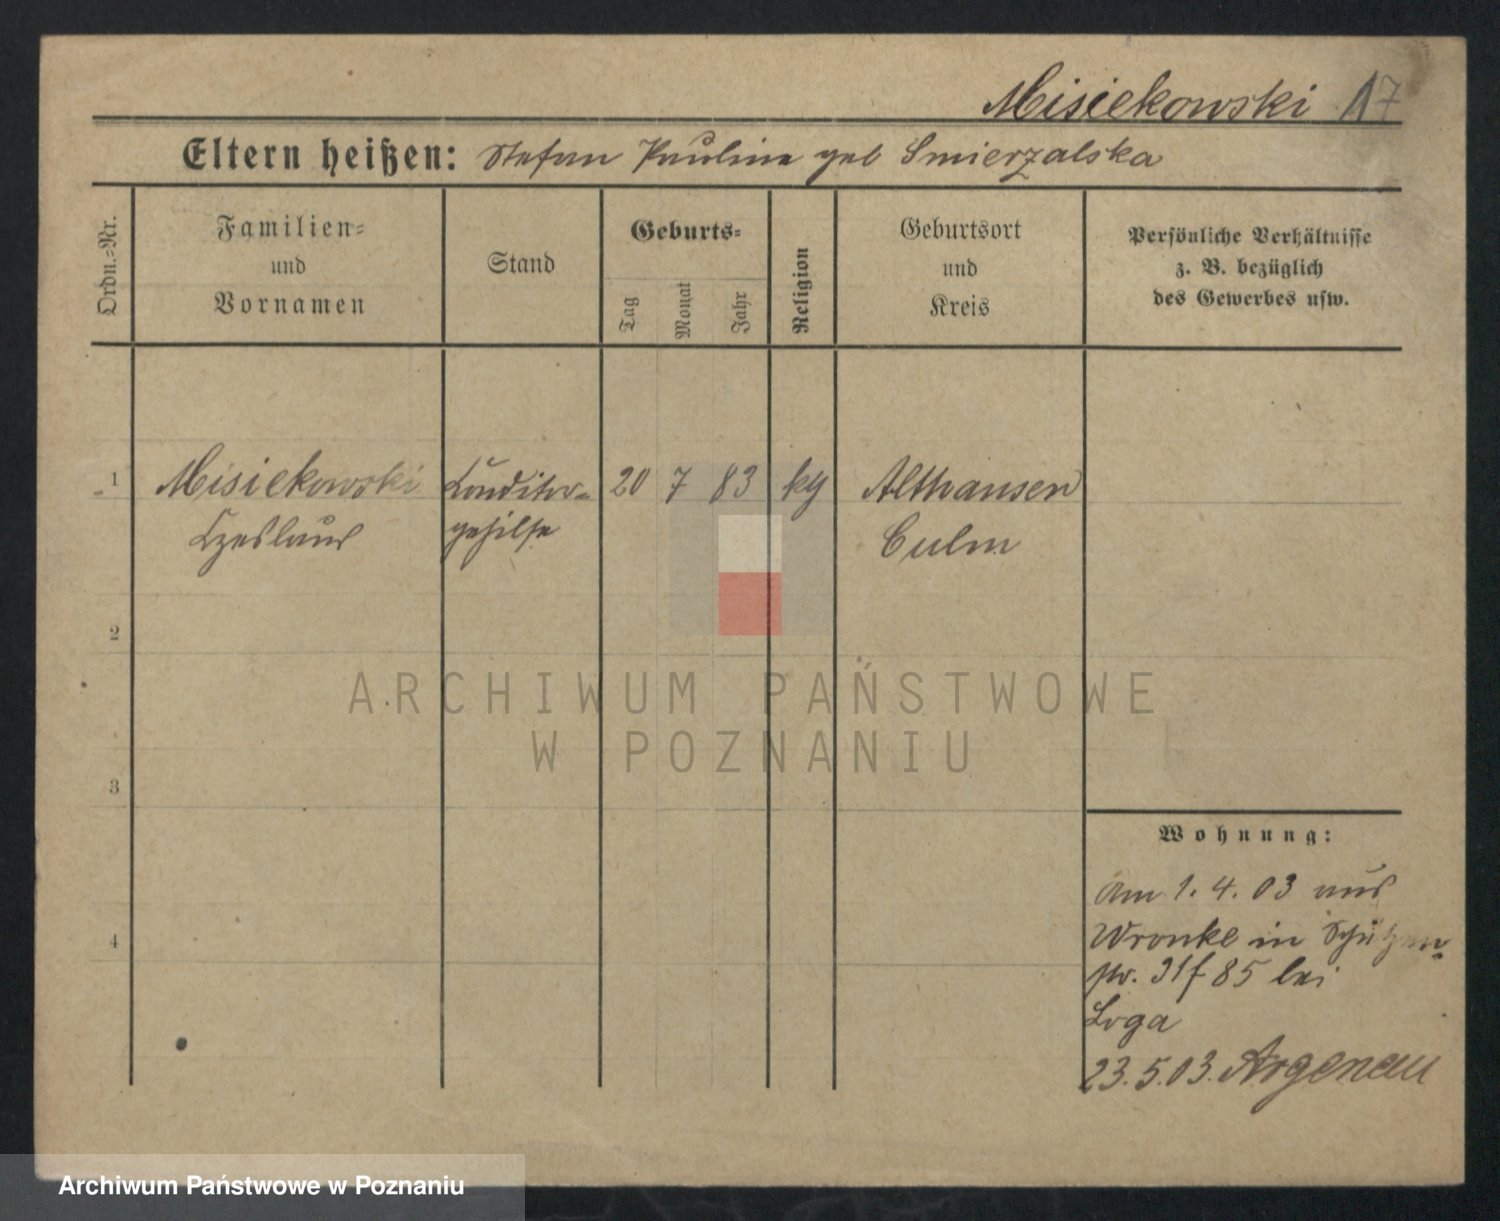 Misiekowski 17
Eltern heißen: Stefan Pauline geb Smierzalska
Ordn.-Nr.
Familien-
und
Vornamen
Stand
Geburts-
Tag
Monat
Jahr
Religion
Geburtsort
und
Kreis
Persönliche Verhältnisse
z. B. bezüglich
des Gewerbes usw.
1 Misiekowski Conditor- 20 7 83 kg Althausen
Czeslaus gehilfe Culm
2
3
4
Wohnung:
Am 1. 4. 03 aus
Wronke in Schützen-
str. 31 85 bei
Loga
23. 5. 03. Argenau
ARCHIWUM PAŃSTWOWE
W POZNANIU
Archiwum Państwowe w Poznaniu